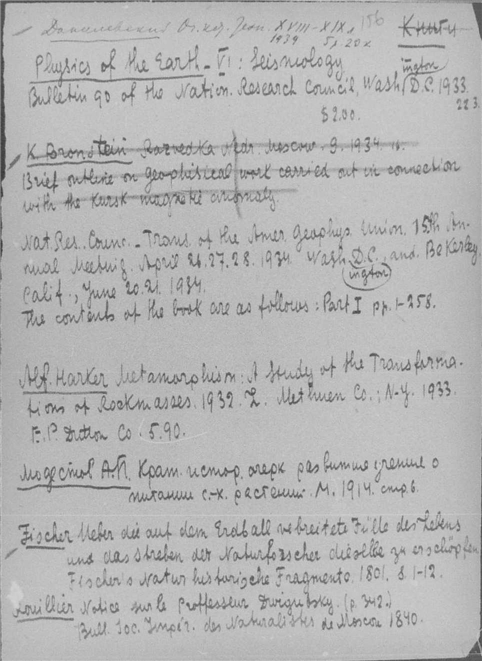 Данилевский Оч. ист. геол. XVIII–XIX в. 156
1939 5 р. 20 к Книги
Physics of the Earth – VI: Seismology
Bulletin 90 of the Nation. Research Council, Washington D.C. 1933.
$2.00. 223.
K. Bronstein Razvedka Nedr. Moscow. 8. 1934
Brief outline on geophisical work carried out in connection
with the Kursk magnetic anomaly.
Nat. Res. Counc. – Trans. of the Amer. Geophys. Union. 15th An-
nual Meeting. April 26.27.28. 1934 Washington D.C., and Berkeley,
Calif., June 20.21. 1934.
The contents of the book are as follows: Part I pp. 1-258.
Alf. Harker Metamorphism: A Study of the Transforma-
tions of Rockmasses. 1932. L. Methuen Co.; N-Y. 1933.
E.P. Dutton Co. 5.90.
Модестов А.П. Крат. истор. очерк развития учение о
питании с.-х. растений. М. 1914. стр. 6.
Fischer Ueber die auf dem Erdball verbreitete Fülle des Lebens
und das Streben der Naturforscher dieselbe zu erschöpfen
Fischer's Naturhistorische Fragmente. 1801. S. 1-12.
Rouillier Notice sur le Proffesseur Dwigubsky. (p. 342.)
Bull. Soc. Impér. des Naturalistes de Moscou 1840.